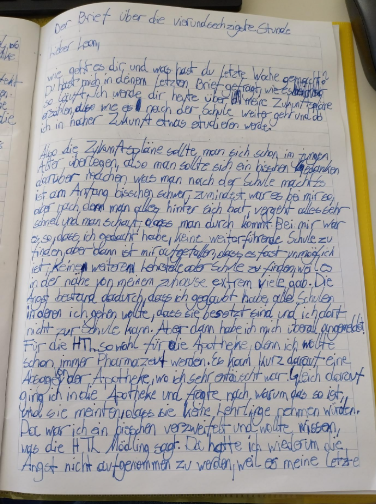 Der Brief über die vierundsechzigste Stunde
Lieber
wie geht es dir, und was hast du letzte Woche gemacht?
Du hast mich in deinem letzten Brief gefragt, wie es
so läuft. Ich werde dir heute über meine Zukunftspläne
erzählen, also wie es nach der Schule weiter geht und ob
ich in naher Zukunft etwas studieren werde.
Also die Zukunftspläne sollte man sich schon im jungen
Alter überlegen, also man sollte sich ein bisschen Gedanken
darüber machen was man nach der Schule macht. Es
ist am Anfang bisschen schwer, zumindest war es bei mir so,
aber nach, dann man alles hinter sich hat, vergeht alles sehr
schnell und man schaut, dass man durch kommt. Bei mir war
es so, dass ich gedacht habe, keine weiterführende Schule zu
finden, aber dann ist mir aufgefallen, dass es fast unmöglich
ist keine weitere Lehrstelle oder Schule zu finden, weil es
in der nähe von meinem zuhause extrem viele gab. Die
Angst bestand dadurch, dass ich geglaubt habe, alle Schulen
in denen ich gehen wollte, dass sie besetzt sind und ich dort
nicht zur Schule kann. Aber dann habe ich mich überall angemeldet.
Für die HTL, sowohl für die Apotheke, denn ich wollte
schon immer Pharmazeut werden. Es kam kurz darauf eine
Absage der Apotheke, wo ich sehr enttäuscht war. Gleich darauf
ging ich in die Apotheke und fragte nach, warum das so ist,
und sie meinten, dass sie keine Lehrlinge nehmen würden.
Da war ich ein bisschen verzweifelt und wollte wissen,
was die HTL Mödling sagt. Da hatte ich wiederum die
Angst nicht aufgenommen zu werden, weil es meine letzte